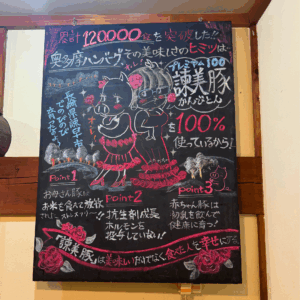 累計120,000食を突破した!!
奥多摩ハンバーグ、その美味しさのヒミツは、
プレミアム100
諫美豚
かんびとん
を100%
使っているから!
長崎県諫早市
でのびのび
Point1
お米を食べて
ストレスフリー!!
Point2
抗生剤/成長
ホルモンを
投与していない!!
point3
赤ちゃん豚は
初乳を飲んで
健康に育つ!
「諫美豚」は美味しいだけでなく食べた人を幸せに